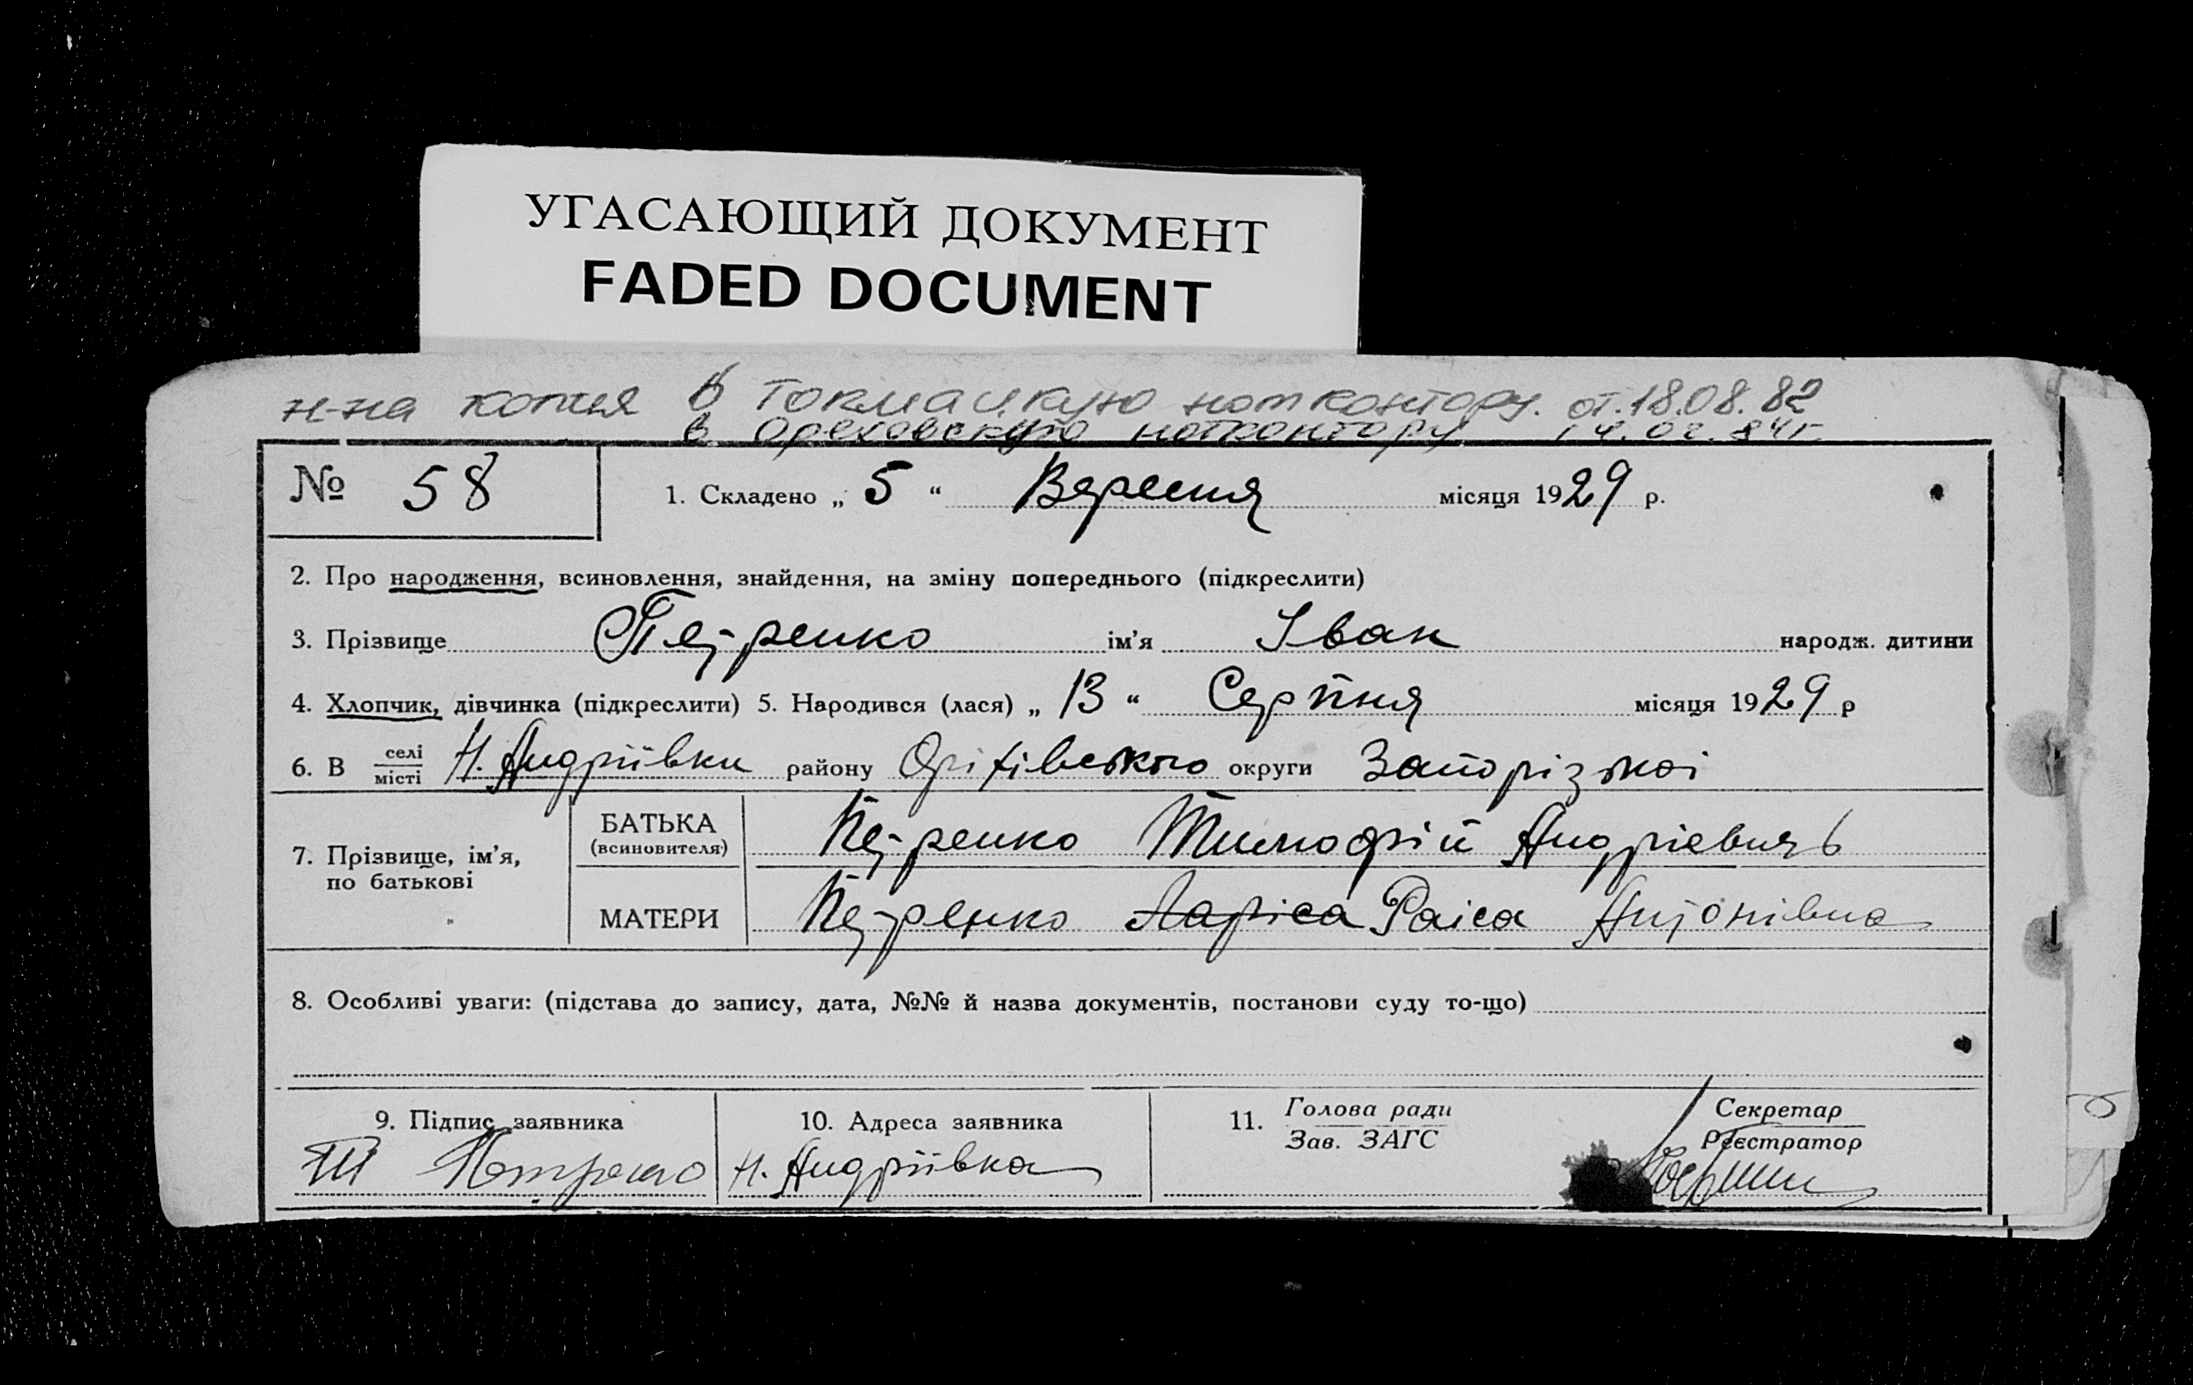 УГАСАЮЩИЙ ДОКУМЕНТ
FADED DOCUMENT
н-на копия в Токмацкую нотконтору. от. 18.08.82
в Ореховскую нотконтору 84 г.
№ 58
1. Складено „ 5 “ Вересня місяця 1929 р.
2. Про народження, всиновлення, знайдення, на зміну попереднього (підкреслити)
3. Прізвище Петренко ім’я Іван народж. дитини
4. Хлопчик, дівчинка (підкреслити) 5. Народився (лася) „ 13 “ Серпня місяця 1929 р
6. В селі місті Н. Андріївки району Оріхівського округи Запорізької
7. Прізвище, ім’я, по батькові
БАТЬКА (всиновителя) Петренко Тимофій Андрієвич
МАТЕРИ Петренко Ларіса Раіса Антонівна
8. Особливі уваги: (підстава до запису, дата, №№ й назва документів, постанови суду то-що)
9. Підпис заявника
10. Адреса заявника
11. Голова ради Зав. ЗАГС
Секретар Реєстратор
Т Петренко
Н. Андріївка